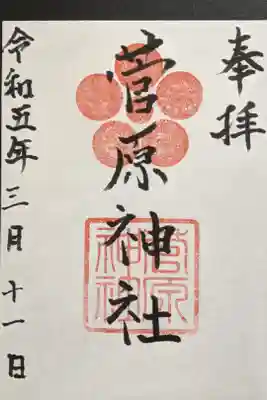 奉拝
菅原神社
令和五年三月十一日
菅原
神社